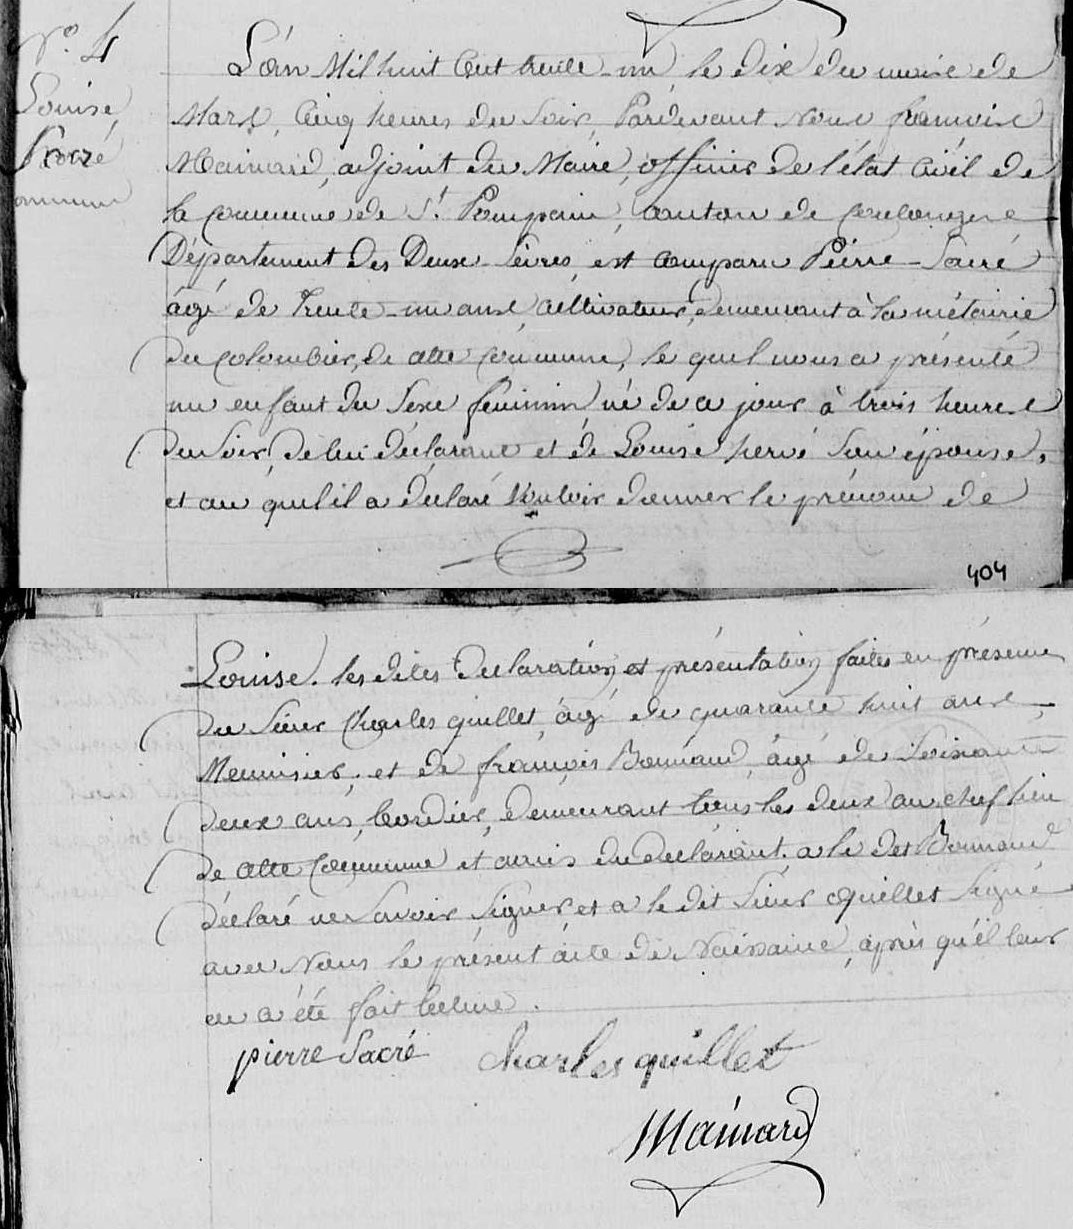 N.º 4
Louise
Sacré
L'an Mil huit Cent trente-un, le dix du mois de
Mars, Cinq heures du Soir, Pardevant Nous françois
Mainard, adjoint du Maire, officier de l'état Civil de
la commune de S.t Pompain, Canton de Coulonges
Département des Deux-Sèvres, est comparu Pierre Sacré
âgé de trente-un ans, Cultivateur, demeurant à la métairie
du Colombier, de cette commune, le quel nous a présenté
un enfant du Sexe féminin né de ce jour à trois heures
du Soir, de lui déclarant et de Louise hervé Son épouse,
et au quel il a déclaré Vouloir donner le prénom de
404
Louise. les dites Déclaration et présentation faites en présence
du Sieur Charles quillet, âgé de quarante huit ans,
Menuisier, et de françois Bonnaud, âgé de Soixante
deux ans, bordier, demeurant tous les deux au chef lieu
de cette Commune et amis du declarant. a le det Bonnaud
déclaré ne Savoir Signer et a le dit Sieur quillet Signé
avec Nous le présent acte de Naissance, après qu'il leur
en a été fait lecture.
pierre Sacré Charles quillet
Mainard